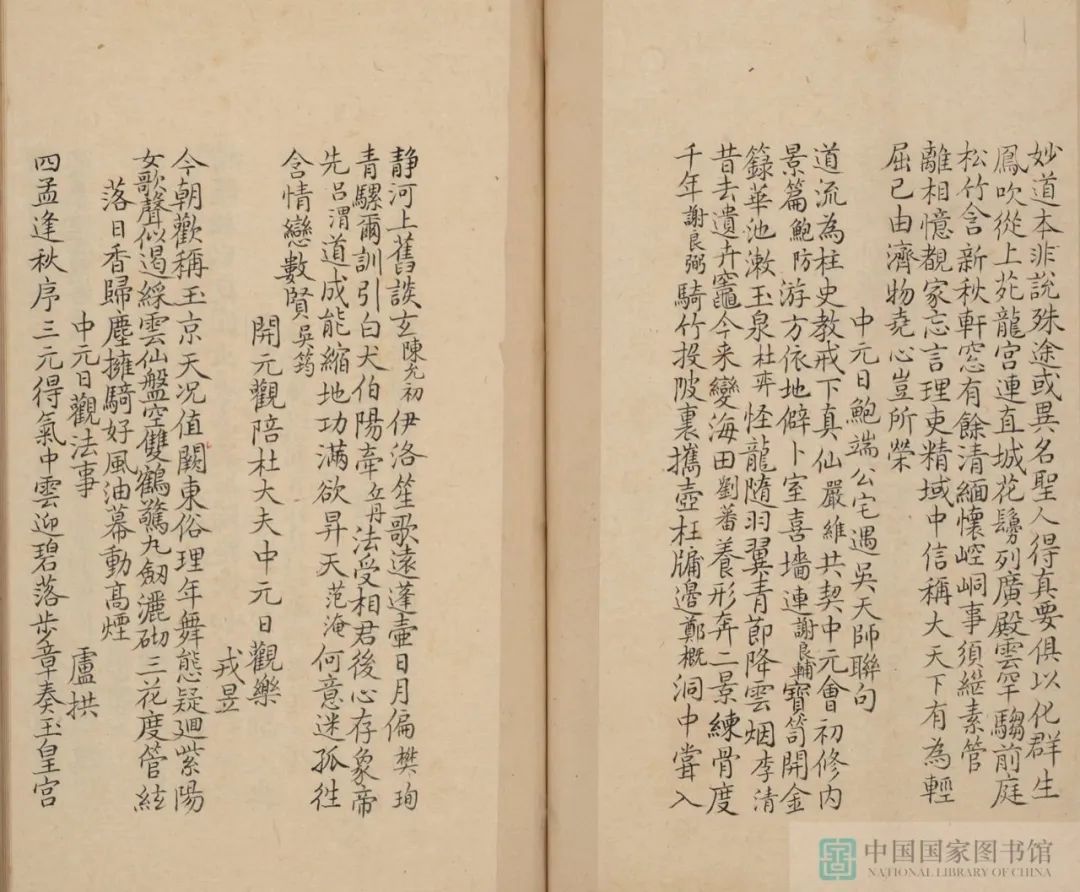 妙道本非說殊途或異名聖人得真要俱以化群生
鳳吹從上苑龍宫連直城花鬘列廣殿雲罕騶前庭
松竹含新秋軒窓有餘清緬懷崆峒事須継素管
離相憶覩家忘言理吏精域中信稱大天下有為輕
屈己由濟物堯心豈所榮
中元日鮑端公宅遇吴天師聯句
道流為柱史教戒下真仙嚴維共契中元會初修内
景篇鮑防游方依地僻卜室喜墻連謝良輔寶笥開金
籙華池漱玉泉杜弈怪龍隨羽翼青節降雲烟李清
昔去遺卉竈今来變海田劉蕃養形奔二景練骨度
千年謝良弼騎竹投陂裏攜壺枉牖邊鄭概洞中嘗入
静河上舊談玄陳允初伊洛笙歌遠蓬壺日月偏樊珣
青騾爾訓引白犬伯陽牽丘丹法受相君後心存象帝
先吕渭道成能縮地功滿欲昇天范淹何意迷孤徃
含情戀數賢吴筠
開元觀陪杜大夫中元日觀樂
戎昱
今朝歡稱玉京天况值關東俗理年舞態疑廻紫陽
女歌聲似遏綵雲仙盤空雙鶴驚九劔灑砌三花度管絃
落日香歸塵擁騎好風油幕動髙煙
中元日觀法事
盧拱
四孟逢秋序三元得氣中雲迎碧落步章奏玉皇宫
中国国家图书馆
NATIONAL LIBRARY OF CHINA